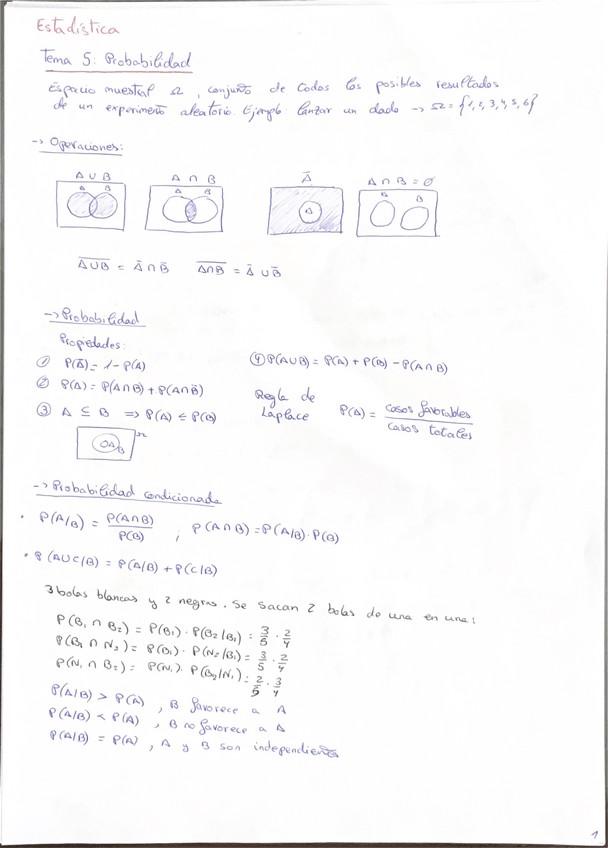 Estadística
Tema 5: Probabilidad
Espacio muestral Ω, conjunto de todos los posibles resultados
de un experimento aleatorio. Ejemplo lanzar un dado → Ω = {1, 2, 3, 4, 5, 6}
→ Operaciones:
A ∪ B A ∩ B Ā A ∩ B = ∅
A B A B A A B
\overline{A∪B} = Ā ∩ B̄ \overline{A∩B} = Ā ∪ B̄
→ Probabilidad
Propiedades:
① P(Ā) = 1 - P(A) ④ P(A∪B) = P(A) + P(B) - P(A∩B)
② P(A) = P(A∩B) + P(A∩B̄)
③ A ⊆ B ⇒ P(A) ≤ P(B)
Regla de Laplace P(A) = casos favorables / casos totales
A B Ω
→ Probabilidad condicionada
• P(A/B) = P(A∩B) / P(B) ; P(A∩B) = P(A/B) · P(B)
• P(A∪C/B) = P(A/B) + P(C/B)
3 bolas blancas y 2 negras. Se sacan 2 bolas de una en una:
P(B₁ ∩ B₂) = P(B₁) · P(B₂/B₁) = 3/5 · 2/4
P(B₁ ∩ N₂) = P(B₁) · P(N₂/B₁) = 3/5 · 2/4
P(N₁ ∩ B₂) = P(N₁) · P(B₂/N₁) = 2/5 · 3/4
P(A/B) > P(A), B favorece a A
P(A/B) < P(A), B no favorece a A
P(A/B) = P(A), A y B son independientes
1